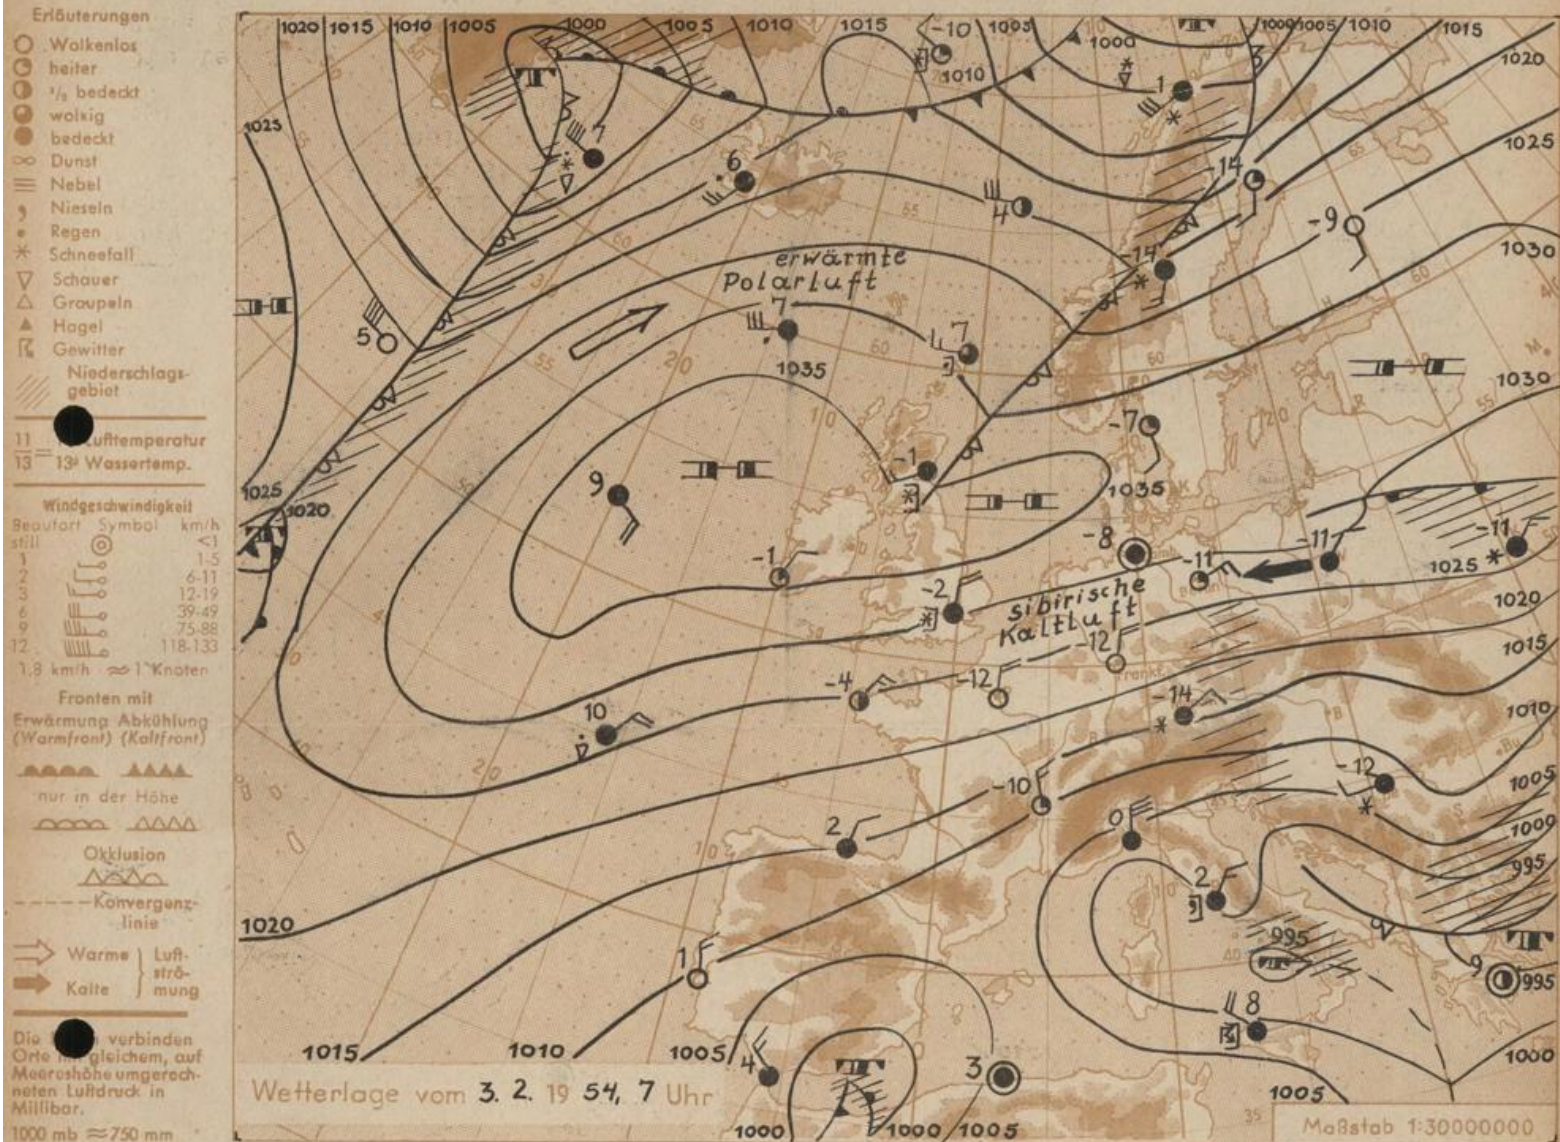 Erläuterungen
Wolkenlos
heiter
½ bedeckt
wolkig
bedeckt
Dunst
Nebel
Nieseln
Regen
Schneefall
Schauer
Graupeln
Hagel
Gewitter
Niederschlags-
gebiet
11
13
Lufttemperatur
Wassertemp.
Windgeschwindigkeit
Beaufort Symbol km/h
still <1
1 1-5
2 6-11
3 12-19
6 39-49
9 75-88
12 118-133
1,8 km/h ≈ 1 Knoten
Fronten mit
Erwärmung Abkühlung
(Warmfront) (Kaltfront)
nur in der Höhe
Okklusion
Konvergenz-
linie
Warme
Kalte
Luft-
strö-
mung
Die verbinden
Orte gleichem, auf
Meereshöhe umgerech-
neten Luftdruck in
Millibar.
1000 mb ≈ 750 mm
1020 1015 1010 1005 1000 1005 1010 1015 -10 1005 1000 1000 1005 1010 1015
1010
1020
1
1025
1025
7
6
-14
4
-9
erwärmte
Polarluft
-14
1030
5
7
7
1035
1030
-7
-1
9
1035
1025
1020
-8
-11
-11
-11
1025
-1
-2
sibirische
Kaltluft
1020
-12
1015
-4
-12
-14
10
1010
-12
1005
-10
0
2
1000
995
2
1020
995
1
9
995
8
1015
1010
1005
4
3
1000
1005
Wetterlage vom 3. 2. 19 54, 7 Uhr
1000
1000 1005
35
Maßstab 1:30000000